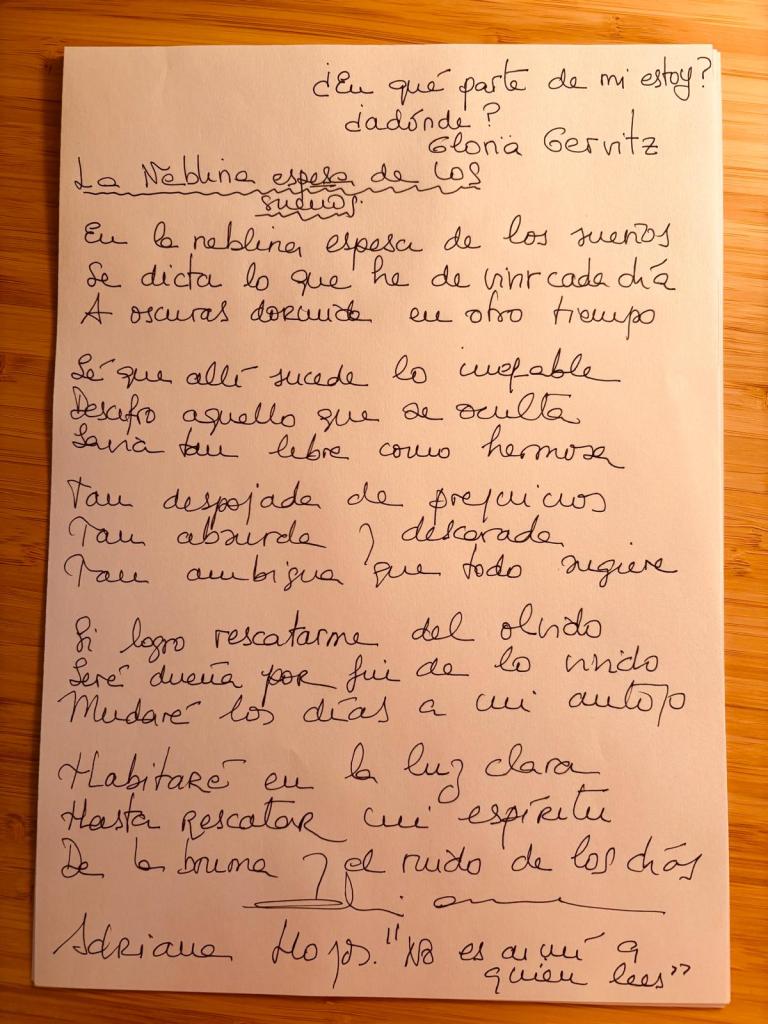 ¿En qué parte de mi estoy?
¿adónde?
Gloria Gervitz
La Neblina espesa de los
sueños.
En la neblina espesa de los sueños
Se dicta lo que he de vivir cada día
A oscuras dormida en otro tiempo
Sé que allí sucede lo inefable
Descifro aquello que se oculta
Savia tan libre como hermosa
Tan despojada de prejuicios
Tan absurda y descarada
Tan ambigua que todo sugiere
Si logro rescatarme del olvido
Seré dueña por fin de lo vivido
Mudaré los días a mi antojo
Habitaré en la luz clara
Hasta rescatar mi espíritu
De la bruma y el ruido de los días
Adriana Hoyos. "No es a mí a
quien lees"